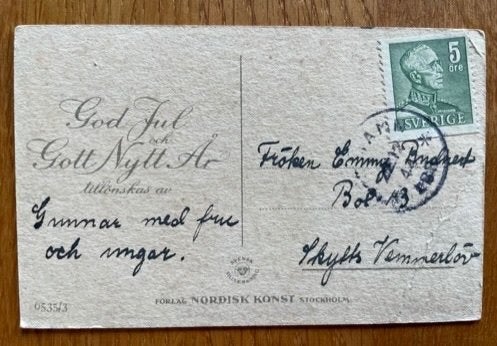 God Jul
och
Gott Nytt År
tillönskas av
Gunnar med fru
och ungar.
6535/3
5
öre
SVERIGE
Fröken Emma
Box 13
Skytts Vemmerlöv
SVENSK
FÖRLAG NORDISK KONST STOCKHOLM